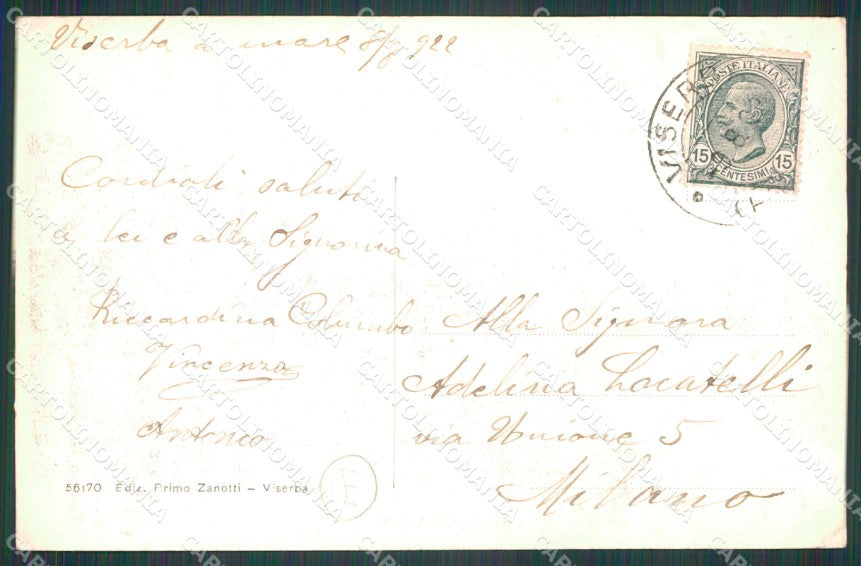 Viserba a mare 8/8 922
POSTE ITALIANE
15 15
CENTESIMI
VISERBA
Cordiali saluti
a lei e alla Signorina
Riccardina Colombo
Vincenzo
Antonio
Alla Signora
Adelina Locatelli
via Unione 5
Milano
56170 Ediz. Primo Zanotti – Viserba
E
CARTOLINOMANIA